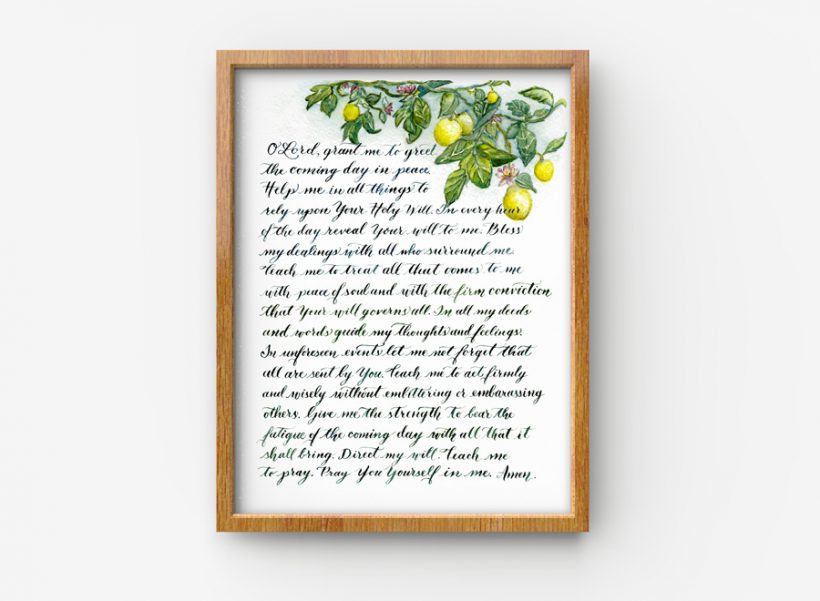 O Lord, grant me to greet
the coming day in peace.
Help me in all things to
rely upon Your Holy Will. In every hour
of the day reveal Your will to me. Bless
my dealings with all who surround me.
Teach me to treat all that comes to me
with peace of soul and with the firm conviction
that Your will governs all. In all my deeds
and words guide my thoughts and feelings.
In unforeseen events let me not forget that
all are sent by You. Teach me to act firmly
and wisely without embittering or embarassing
others. Give me the strength to bear the
fatigue of the coming day with all that it
shall bring. Direct my will. Teach me
to pray. Pray You Yourself in me. Amen.